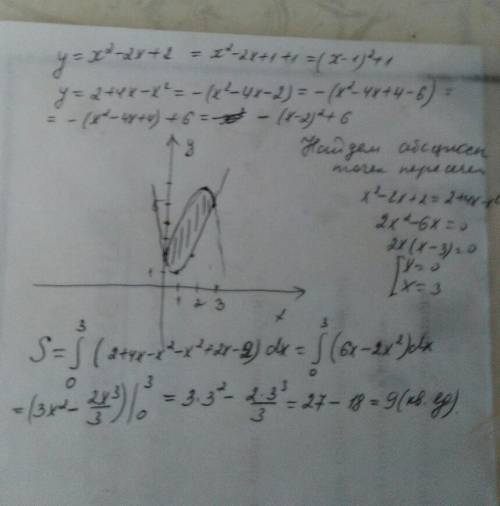 y = x² - 2x + 2 = x² - 2x + 1 + 1 = (x - 1)² + 1
y = 2 + 4x - x² = -(x² - 4x - 2) = -(x² - 4x + 4 - 6) =
= -(x² - 4x + 4) + 6 = -(x - 2)² + 6
Найдем абсциссы
точек пересеч
x² - 2x + 2 = 2 + 4x - x²
2x² - 6x = 0
2x(x - 3) = 0
[x = 0
x = 3
y
5
1
1 2 3
x
S = ∫₀³ (2 + 4x - x² - x² + 2x - 2) dx = ∫₀³ (6x - 2x²) dx
= (3x² - 2x³/3)|₀³ = 3·3² - 2·3³/3 = 27 - 18 = 9 (кв. ед).